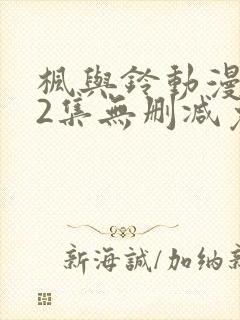 楓與鈴動漫
2集無刪减
新海誠/加納新